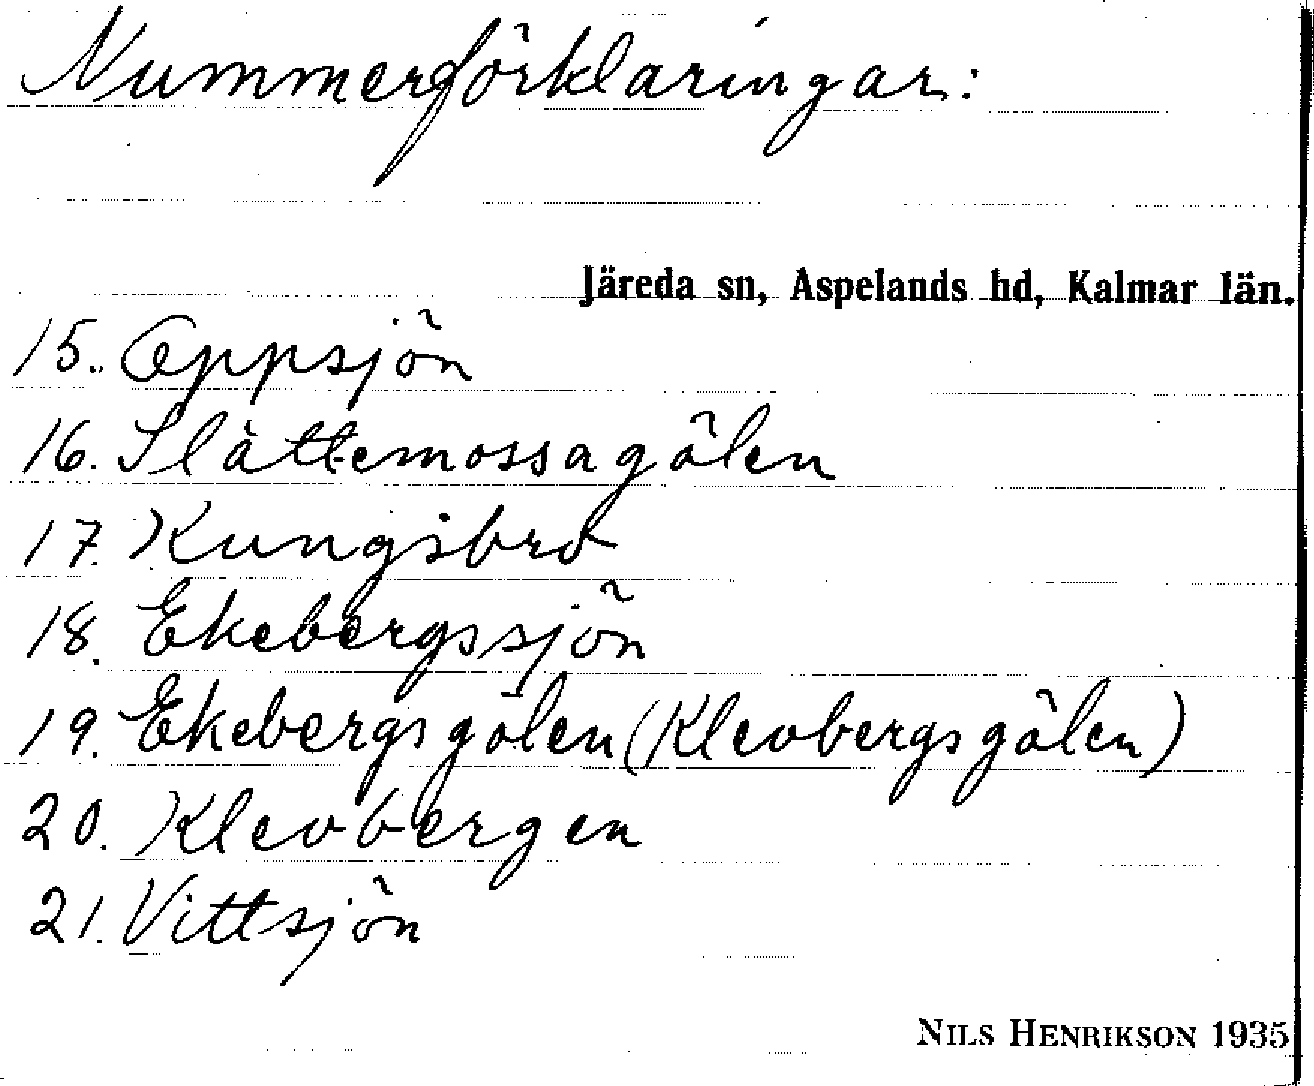 Nummerförklaringar:
Järeda sn, Aspelands hd, Kalmar län.
15. Oppsjön
16. Slättemossagölen
17. Kungsbro
18. Ekebergssjön
19. Ekebergsgölen (Klevbergsgölen)
20. Klevbergen
21. Vittsjön
NILS HENRIKSON 1935